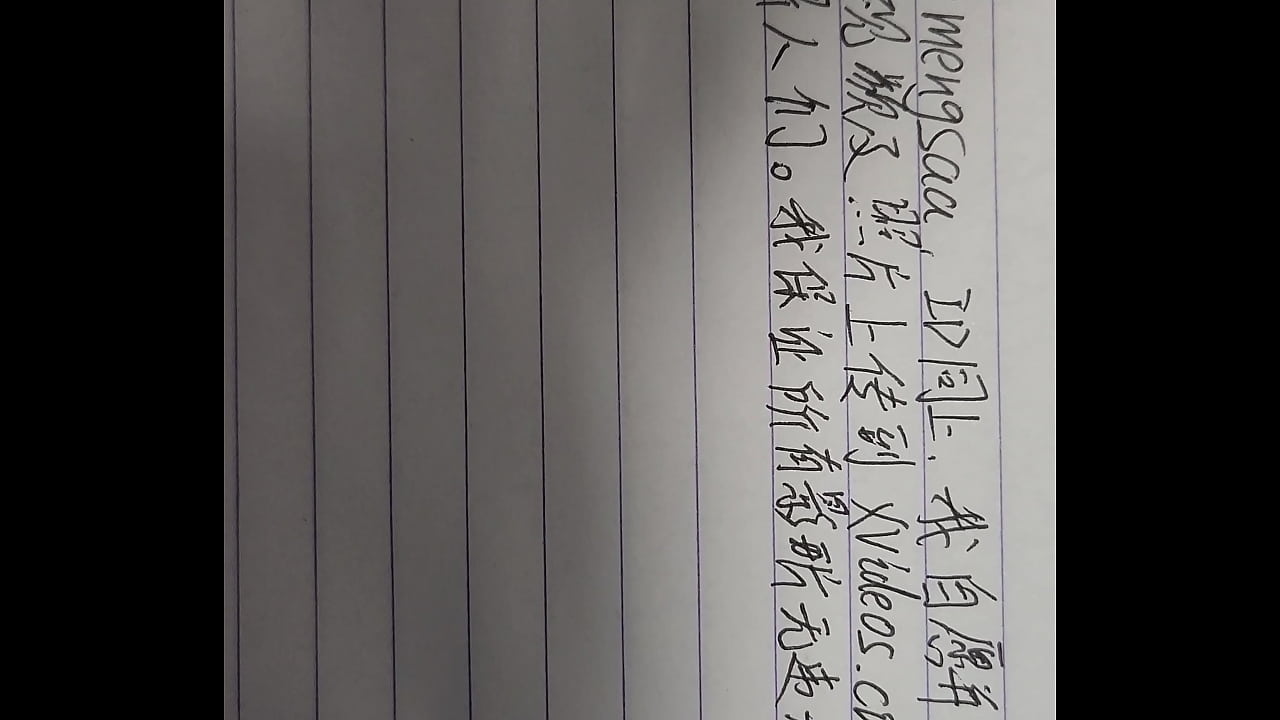 mengsaa, ID同上. 我自愿并
视频及照片上传到 xvideos.c
人们。我保证所有影片无